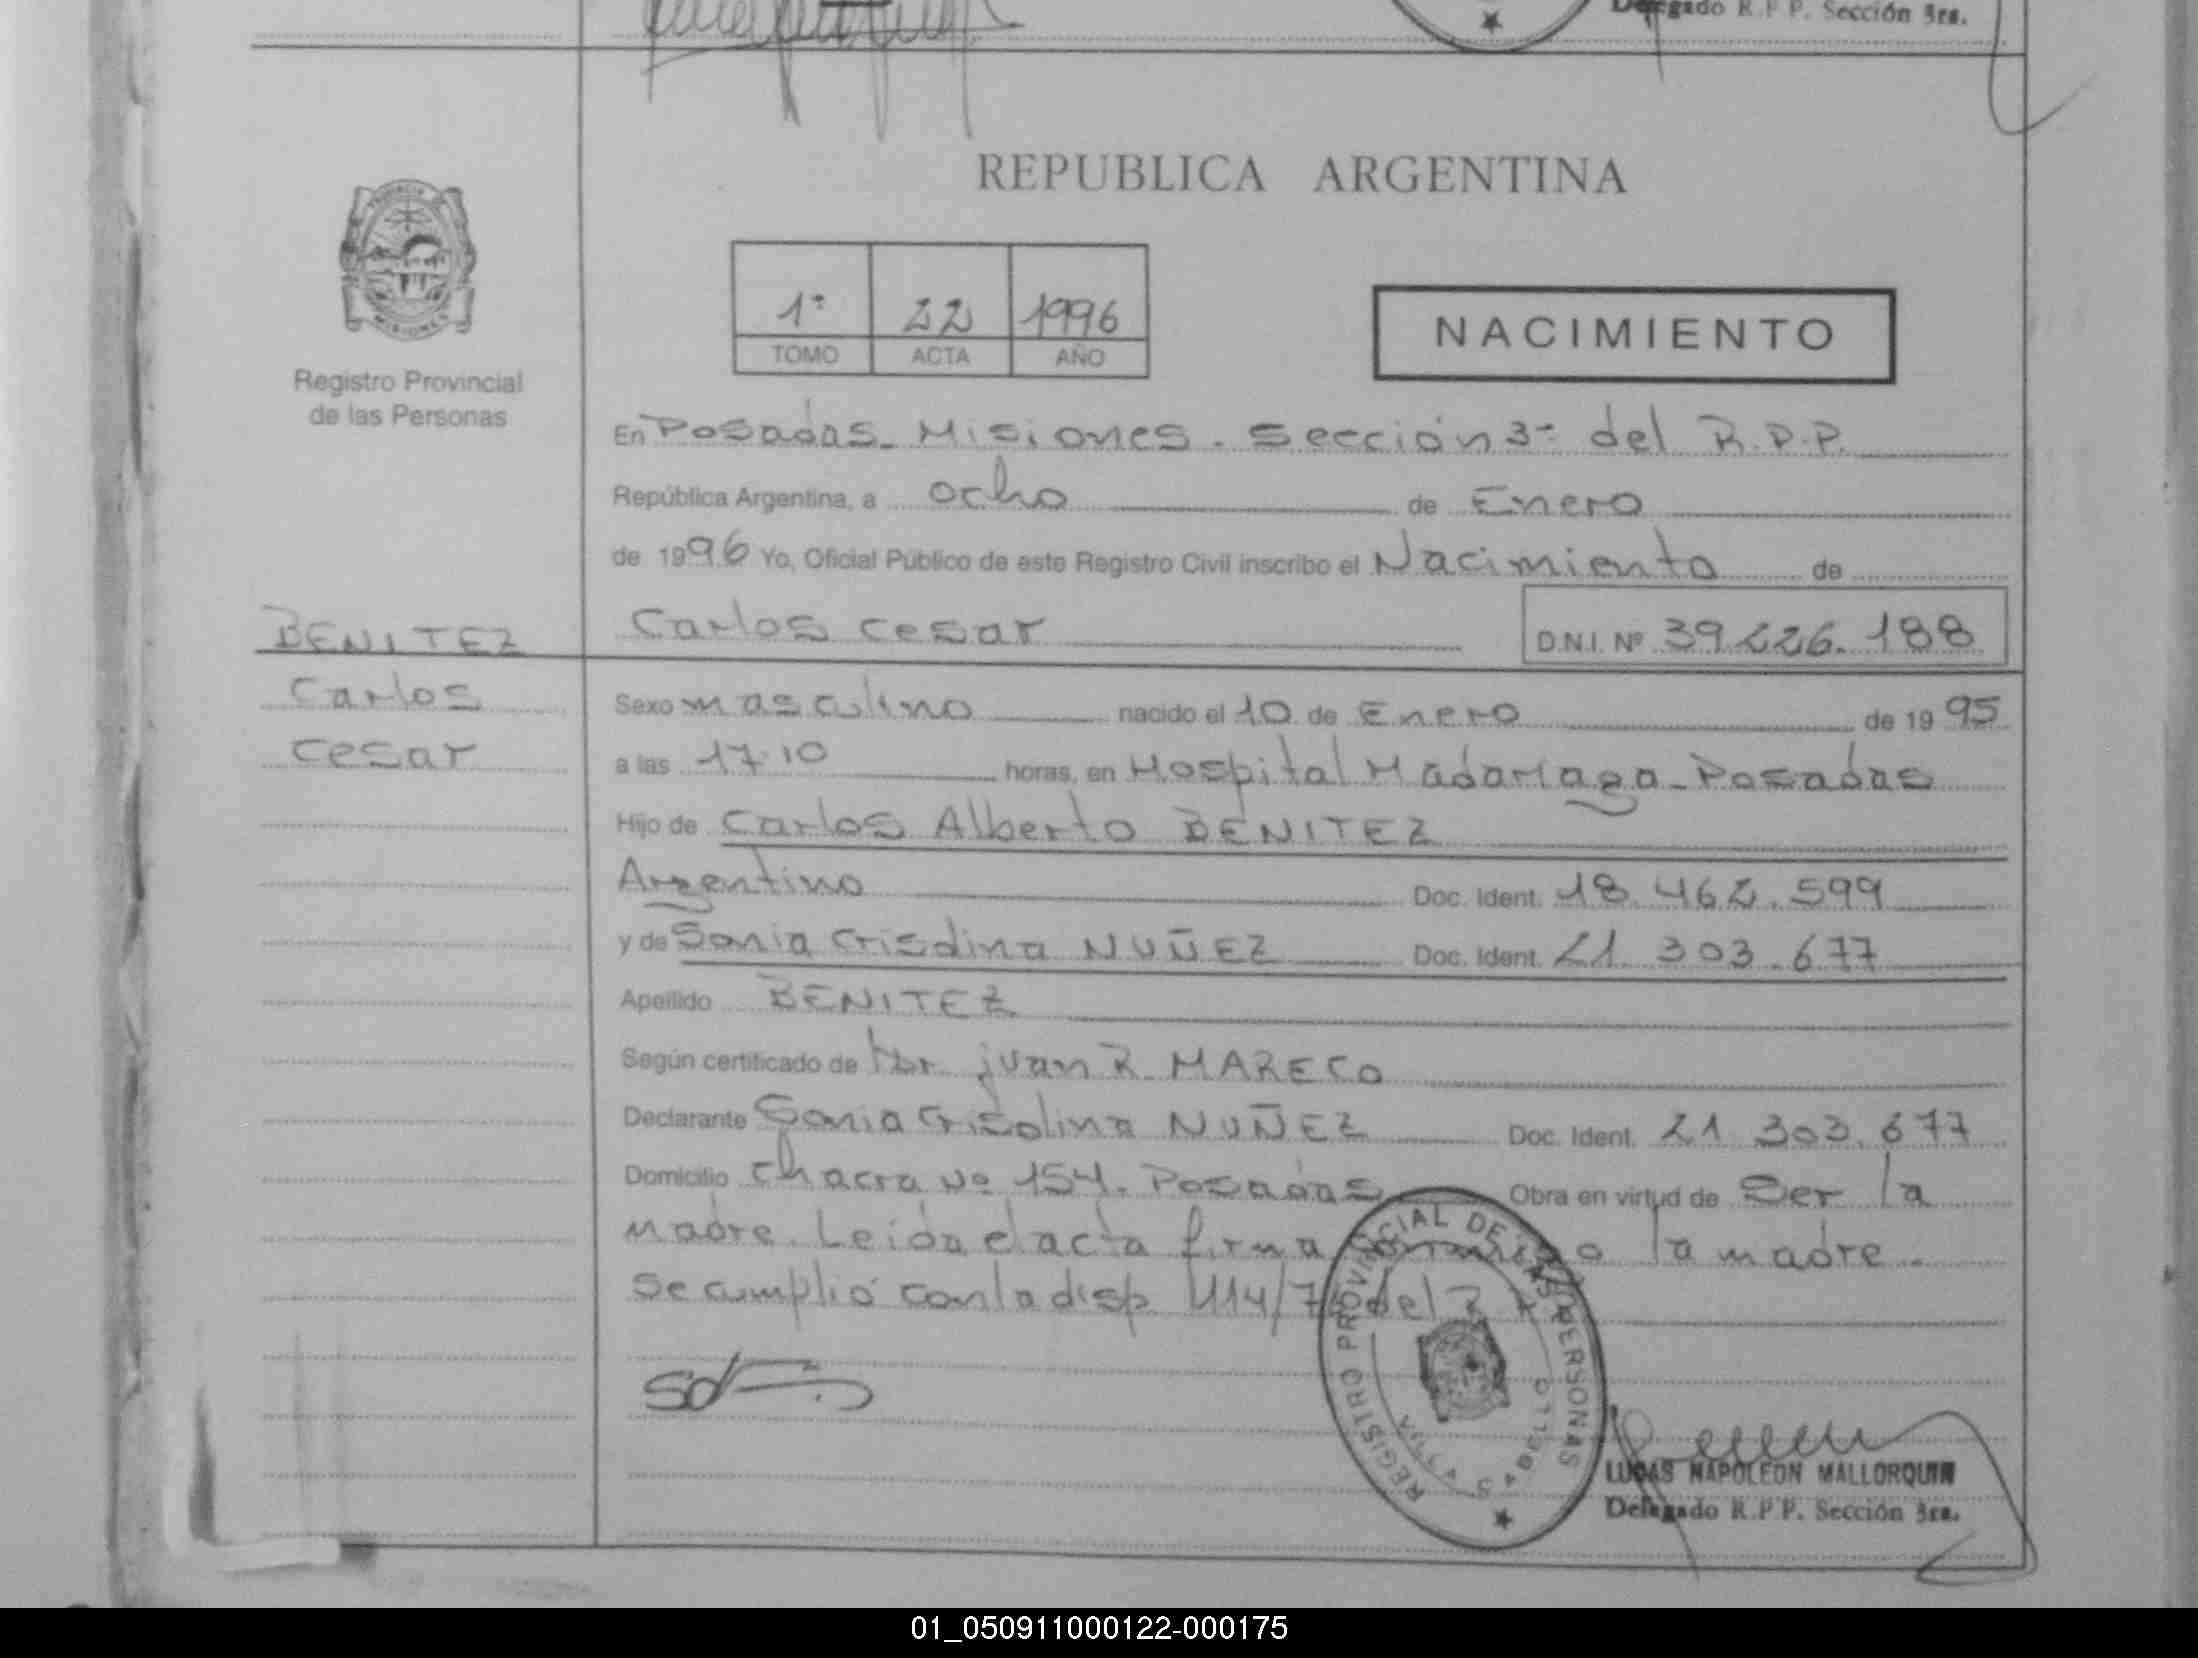 Delegado R.P.P. Sección 3ra.
PROVINCIA
MISIONES
Registro Provincial
de las Personas
REPUBLICA ARGENTINA
1º 22 1996
TOMO ACTA AÑO
NACIMIENTO
En Posadas_ Misiones. Sección 3ª del R.P.P.
República Argentina, a ocho de Enero
de 1996 Yo, Oficial Público de este Registro Civil inscribo el Nacimiento de
BENITEZ Carlos Cesar D.N.I. Nº 39.226.188
Carlos Sexo masculino nacido el 10 de Enero de 1995
Cesar a las 17.10 horas, en Hospital Madariaga_Posadas
Hijo de Carlos Alberto BENITEZ
Argentino Doc. Ident. 18.462.599
y de Sonia Crisolina NUÑEZ Doc. Ident. 21.303.677
Apellido BENITEZ
Según certificado de Dr. juan R. MARECO
Declarante Sonia Crisolina NUÑEZ Doc. Ident. 21.303.677
Domicilio Chacra Nº 154. Posadas Obra en virtud de Ser la
madre. Leida el acta firma conmigo la madre.
Se cumplió con la disp. 1114/7 del
REGISTRO PROVINCIAL DE LAS PERSONAS
LUCAS NAPOLEON MALLORQUIN
Delegado R.P.P. Sección 3ra.
01_050911000122-000175